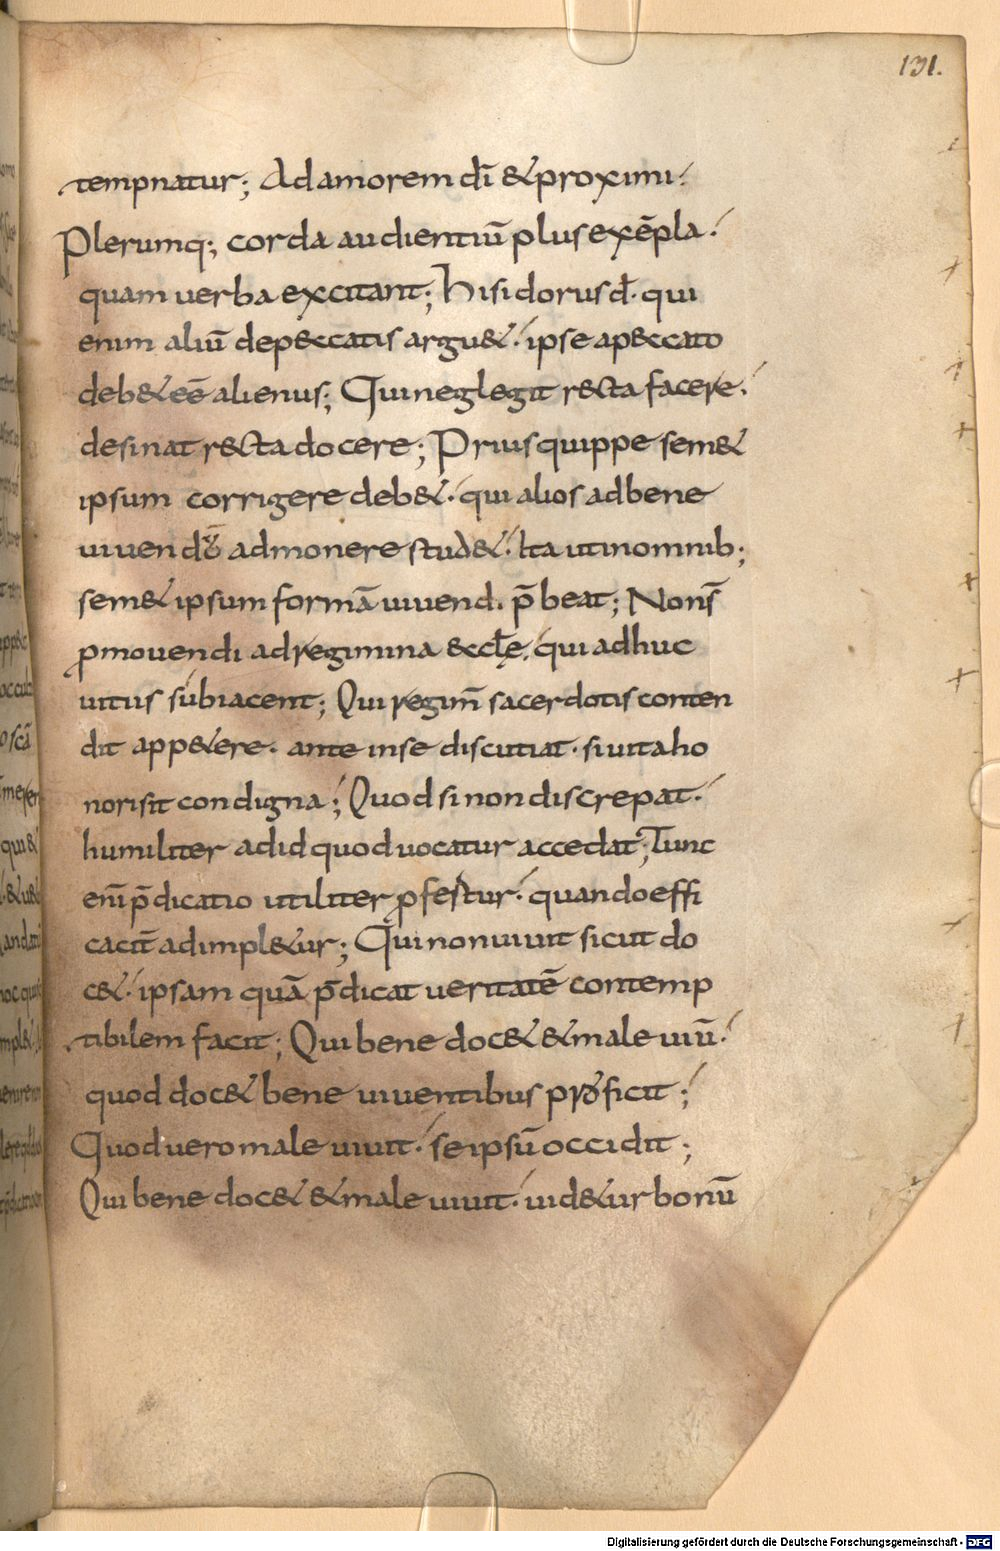 131.
tempnatur; Ad amorem dī & proximi.
Plerumq; corda audientiū plus exēpla.
quam uerba excitant; Hisidorus dt̄. qui
enim aliū de p&ccatis argu&. ipse a p&ccato
deb& eē alienus; Qui neglegit r&cta facere.
desinat r&cta docere; Prius quippe sem&
ipsum corrigere deb&. qui alios ad bene
uiuendū admonere stud&. Ita ut in omnib;
sem& ipsum formā uiuendi p̄beat; Non s̄
ꝓmouendi ad regimina &ccle̜. qui adhuc
uitiis subiacent; Qui regim̄ sacerdotis conten
dit app&ere. ante in se discutiat. si uita ho
nori sit condigna; Quod si non discrepat.
humiliter ad id quod uocatur accedat; Tunc
enī p̄dicatio utiliter ꝓfertur. quando effi
cacit̄ adimpl&ur; Qui non uiuit sicut do
c&. ipsam quā p̄dicat ueritatē contemp
tibilem facit; Qui bene doc& & male uiū.
quod doc& bene uiuentibus proficit;
Quod uero male uiuit. se ipsū occidit;
Qui bene doc& & male uiuit. uid&ur bonū
Digitalisierung gefördert durch die Deutsche Forschungsgemeinschaft - DFG